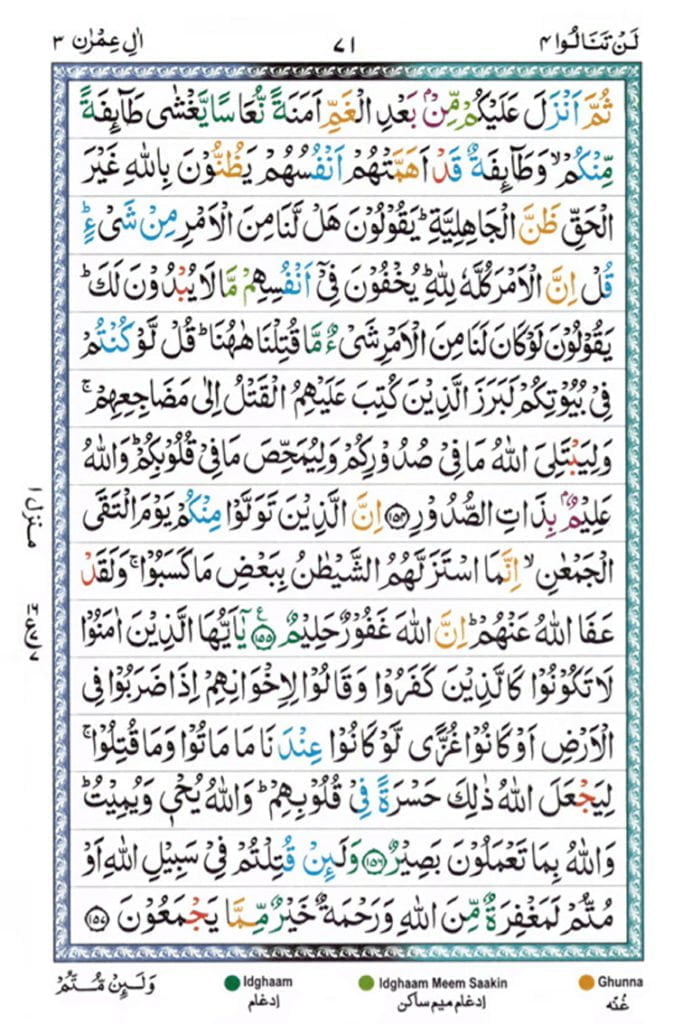 لَنْ تَنَالُوا ۴
۷۱
اٰلِ عِمْرٰن ۳
ثُمَّ اَنْزَلَ عَلَيْكُمْ مِّنْۢ بَعْدِ الْغَمِّ اَمَنَةً نُّعَاسًا يَّغْشٰى طَآئِفَةً
مِّنْكُمْ ۙ وَطَآئِفَةٌ قَدْ اَهَمَّتْهُمْ اَنْفُسُهُمْ يَظُنُّوْنَ بِاللّٰهِ غَيْرَ
الْحَقِّ ظَنَّ الْجَاهِلِيَّةِ ؕ يَقُوْلُوْنَ هَلْ لَّنَا مِنَ الْاَمْرِ مِنْ شَىْءٍ ؕ
قُلْ اِنَّ الْاَمْرَ كُلَّهٗ لِلّٰهِ ؕ يُخْفُوْنَ فِىْۤ اَنْفُسِهِمْ مَّا لَا يُبْدُوْنَ لَكَ ؕ
يَقُوْلُوْنَ لَوْ كَانَ لَنَا مِنَ الْاَمْرِ شَىْءٌ مَّا قُتِلْنَا هٰهُنَا ؕ قُلْ لَّوْ كُنْتُمْ
فِىْ بُيُوْتِكُمْ لَبَرَزَ الَّذِيْنَ كُتِبَ عَلَيْهِمُ الْقَتْلُ اِلٰى مَضَاجِعِهِمْ ۚ
وَلِيَبْتَلِىَ اللّٰهُ مَا فِىْ صُدُوْرِكُمْ وَلِيُمَحِّصَ مَا فِىْ قُلُوْبِكُمْ ؕ وَاللّٰهُ
عَلِيْمٌۢ بِذَاتِ الصُّدُوْرِ ﴿۱۵۴﴾ اِنَّ الَّذِيْنَ تَوَلَّوْا مِنْكُمْ يَوْمَ الْتَقَى
الْجَمْعٰنِ ۙ اِنَّمَا اسْتَزَلَّهُمُ الشَّيْطٰنُ بِبَعْضِ مَا كَسَبُوْا ۚ وَلَقَدْ
عَفَا اللّٰهُ عَنْهُمْ ؕ اِنَّ اللّٰهَ غَفُوْرٌ حَلِيْمٌ ﴿۱۵۵﴾ ع يٰۤاَيُّهَا الَّذِيْنَ اٰمَنُوْا
لَا تَكُوْنُوْا كَالَّذِيْنَ كَفَرُوْا وَقَالُوْا لِاِخْوَانِهِمْ اِذَا ضَرَبُوْا فِى
الْاَرْضِ اَوْ كَانُوْا غُزًّى لَّوْ كَانُوْا عِنْدَنَا مَا مَاتُوْا وَمَا قُتِلُوْا ۚ
لِيَجْعَلَ اللّٰهُ ذٰلِكَ حَسْرَةً فِىْ قُلُوْبِهِمْ ؕ وَاللّٰهُ يُحْىٖ وَيُمِيْتُ ؕ
وَاللّٰهُ بِمَا تَعْمَلُوْنَ بَصِيْرٌ ﴿۱۵۶﴾ وَلَئِنْ قُتِلْتُمْ فِىْ سَبِيْلِ اللّٰهِ اَوْ
مُتُّمْ لَمَغْفِرَةٌ مِّنَ اللّٰهِ وَرَحْمَةٌ خَيْرٌ مِّمَّا يَجْمَعُوْنَ ﴿۱۵۷﴾
منزل ۱
Ghunna
غُنّه
Idghaam Meem Saakin
إدغام ميم ساكن
Idghaam
إدغام
وَلَئِنْ مُّتُّمْ